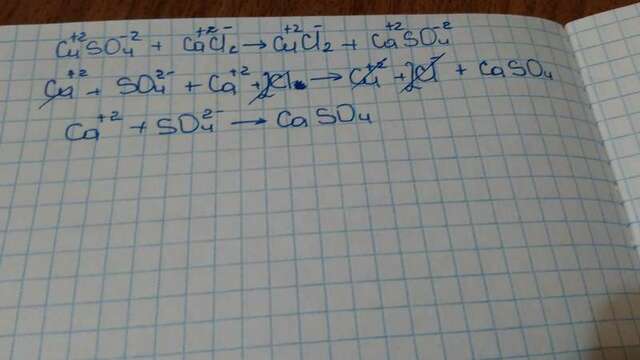 Cu⁺²SO₄⁻² + Ca⁺²Cl₂⁻ → Cu⁺²Cl₂⁻ + Ca⁺²SO₄⁻²
Cu⁺² + SO₄²⁻ + Ca⁺² + 2Cl⁻ → Cu⁺² + 2Cl⁻ + CaSO₄
Ca⁺² + SO₄²⁻ → CaSO₄